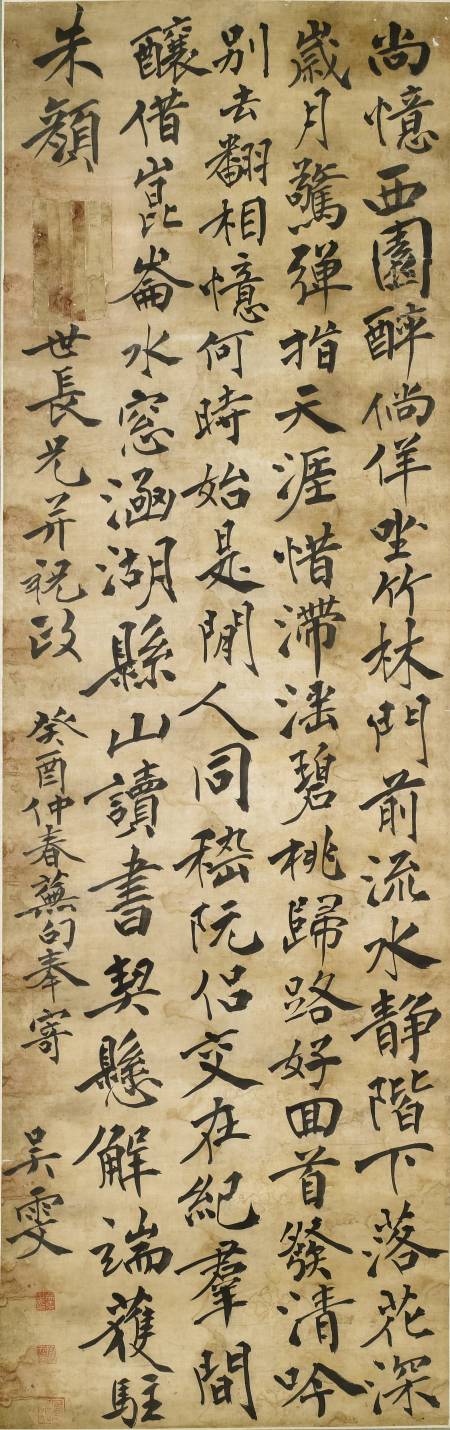 尚憶西園醉倘佯坐竹林門前流水靜階下落花深
歲月驚彈指天涯惜滯淫碧桃歸路好回首發清吟
別去翻相憶何時始是閒人同嵇阮侣交在紀羣間
釀借崑崙水窓涵湖縣山讀書契懸解端蒦駐
朱顏
世長兄并祝政
癸酉仲春蕪句奉寄
吳雯